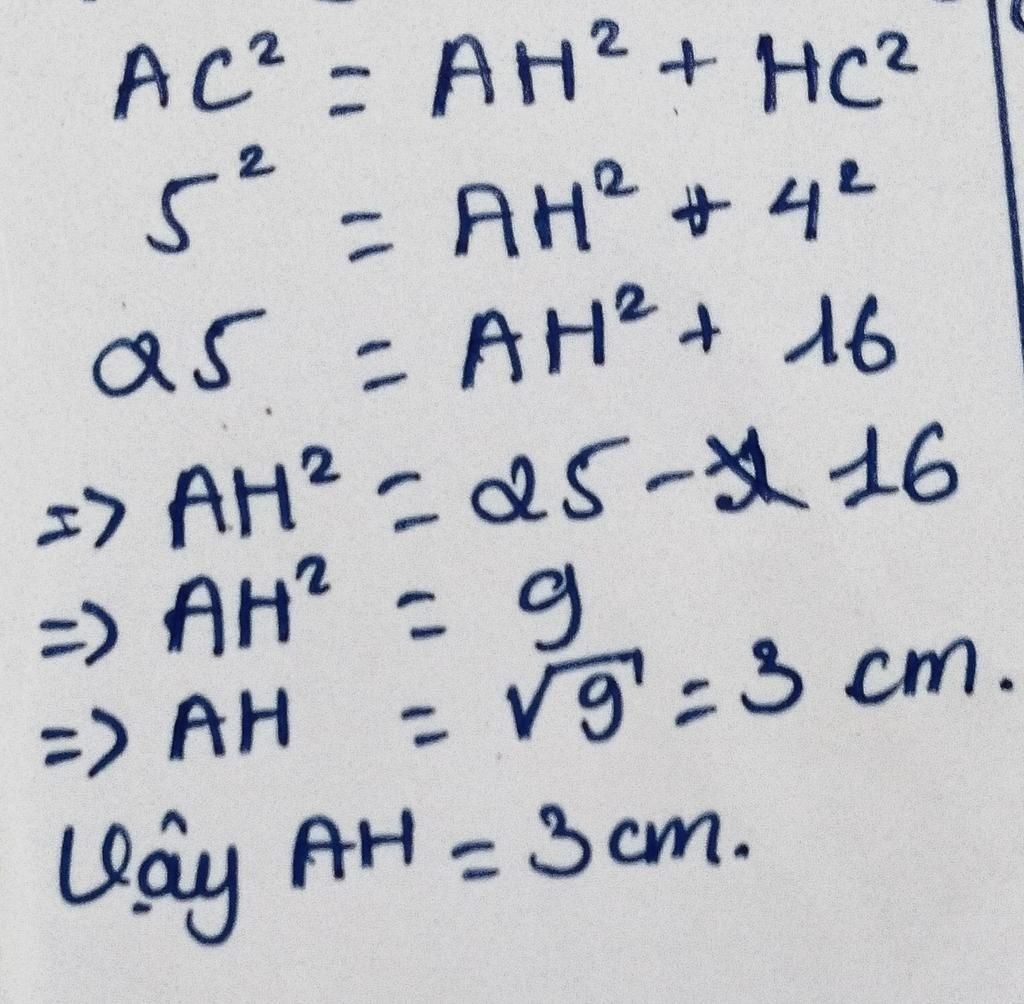 AC² = AH² + HC²
5² = AH² + 4²
25 = AH² + 16
=> AH² = 25 - 16
=> AH² = 9
=> AH = √9 = 3 cm.
Vậy AH = 3cm.